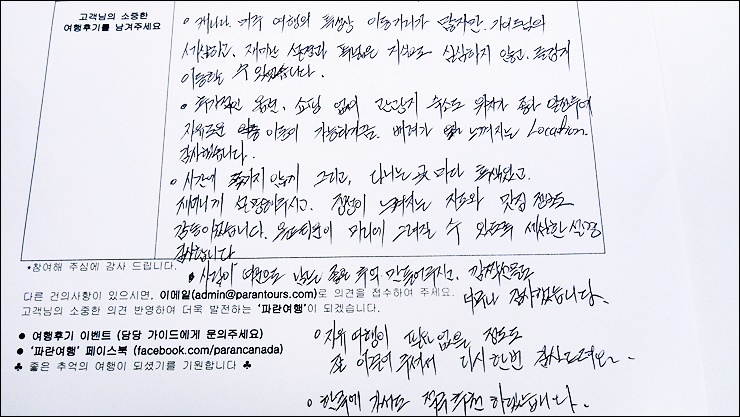 고객님의 소중한
여행후기를 남겨주세요
• 캐나다. 미주 여행의 특성상 이동거리가 많지만. 가이드님의
세심하고. 재미난 설명과 해박한 지식으로 심심하지 않고. 즐겁게
이동할 수 있었습니다.
• 추가적인 옵션, 쇼핑 없이 간간히 숙소도 위치가 좋아 일찍
자유로운 이동이 가능하게끔. 배려가 느껴지는 Location.
감사했습니다.
• 시간에 쫓기지 않게 그리고, 다니는 곳마다 특색있고.
재미나게 설명해주시고. 정성이 느껴지는 지도와 맛집
감동이었습니다. 머리에 그려질 수 있도록 세심한 설명
감사합니다
*참여해 주심에 감사 드립니다.
• 사람이 여전으로 남는 좋은 추억 만들어주시고. 깜짝선물도
너무나 감사했습니다.
다른 건의사항이 있으시면, 이메일(admin@parantours.com)로 의견을 접수하여 주세요.
고객님의 소중한 의견 반영하여 더욱 발전하는 '파란여행'이 되겠습니다.
● 여행후기 이벤트 (담당 가이드에게 문의주세요)
● '파란여행' 페이스북 (facebook.com/parancanada)
♣ 좋은 추억의 여행이 되셨기를 기원합니다 ♣
• 자유여행이 필요없을 정도로
잘 이끌어 주셔서 다시한번 감사드려요~.
• 한국에 가서도 적극추천 하겠습니다.